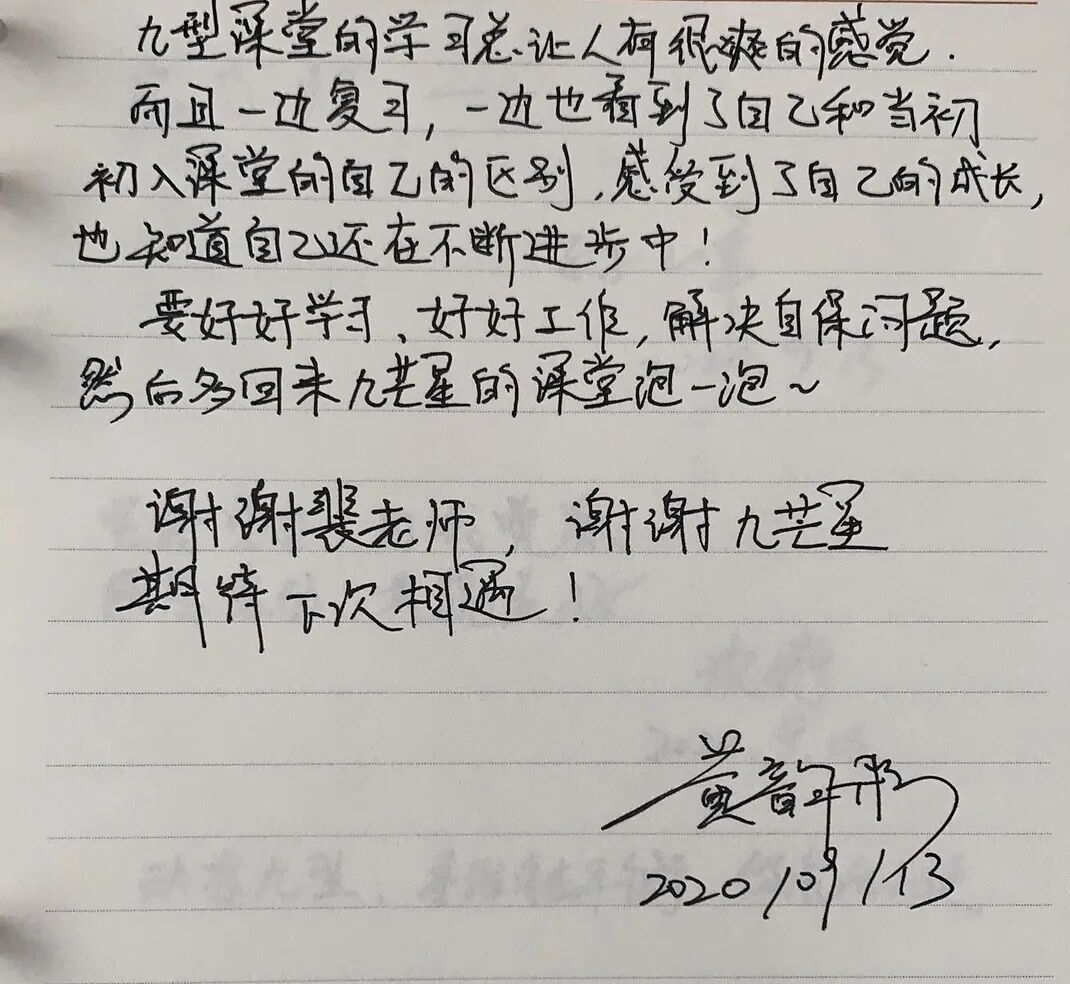 九型课堂的学习总让人有很爽的感觉.
而且一边复习,一边也看到了自己和当初
初入课堂的自己的区别,感受到了自己的成长,
也知道自己还在不断进步中!
要好好学习、好好工作,解决自保问题,
然后多回来九芒星的课堂泡一泡~
谢谢裴老师,谢谢九芒星
期待下次相遇!
黄韵彤
2020/09/13